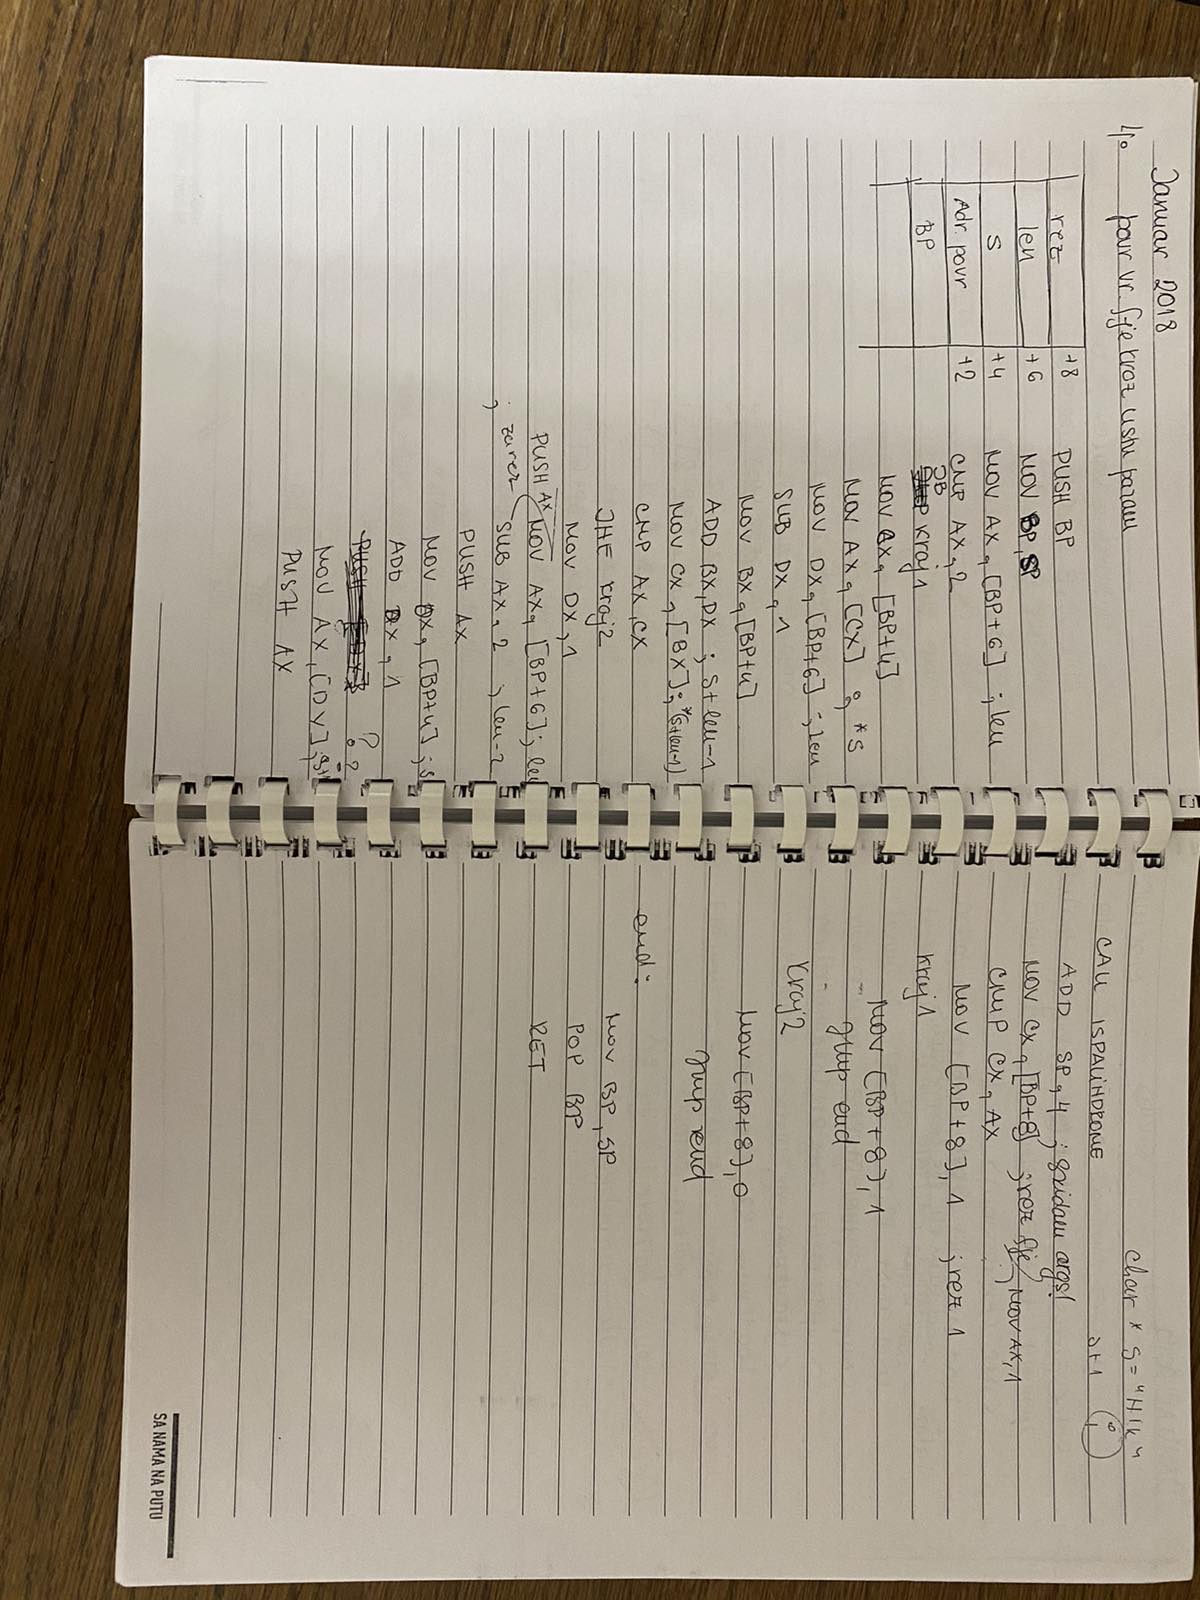 Januar 2018
4. povr vr. fje kroz listu param
rez +8
len +6
s +4
Adr. povr +2
BP
PUSH BP
MOV BP, SP
MOV AX, [BP+6] ; len
CMP AX, 2
JB kraj1
MOV CX, [BP+4]
MOV AX, [CX] ; *s
MOV DX, [BP+6] ; len
SUB DX, 1
MOV BX, [BP+4]
ADD BX, DX ; s+len-1
MOV CX, [BX] ; *(s+len-1)
CMP AX, CX
JNE kraj2
MOV DX, 1
PUSH AX
MOV AX, [BP+6] ; len
; zarez
SUB AX, 2 ; len-2
PUSH AX
MOV DX, [BP+4] ; s
ADD DX, 1
? ?
MOV AX, [DX] ; s+1
PUSH AX
char * s = "Hik"
s+1 i
CALL ISPALINDROME
ADD SP, 4 ; skidam args!
MOV CX, [BP+8] ; rez fje ; MOV AX, 1
CMP CX, AX
MOV [BP+8], 1 ; rez 1
kraj1
MOV [BP+8], 1
jmp end
kraj2
MOV [BP+8], 0
jmp end
end:
MOV BP, SP
POP BP
RET
SA NAMA NA PUTU